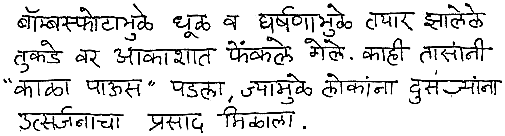 बॉम्बस्फोटामुळे धूळ व घर्षणामुळे तयार झालेले
तुकडे वर आकाशात फेंकले गेले. काही तासांनी
"काळा पाऊस" पडला, ज्यामुळे लोकांना दुसऱ्यांना
उत्सर्जनाचा प्रसाद मिळाला.